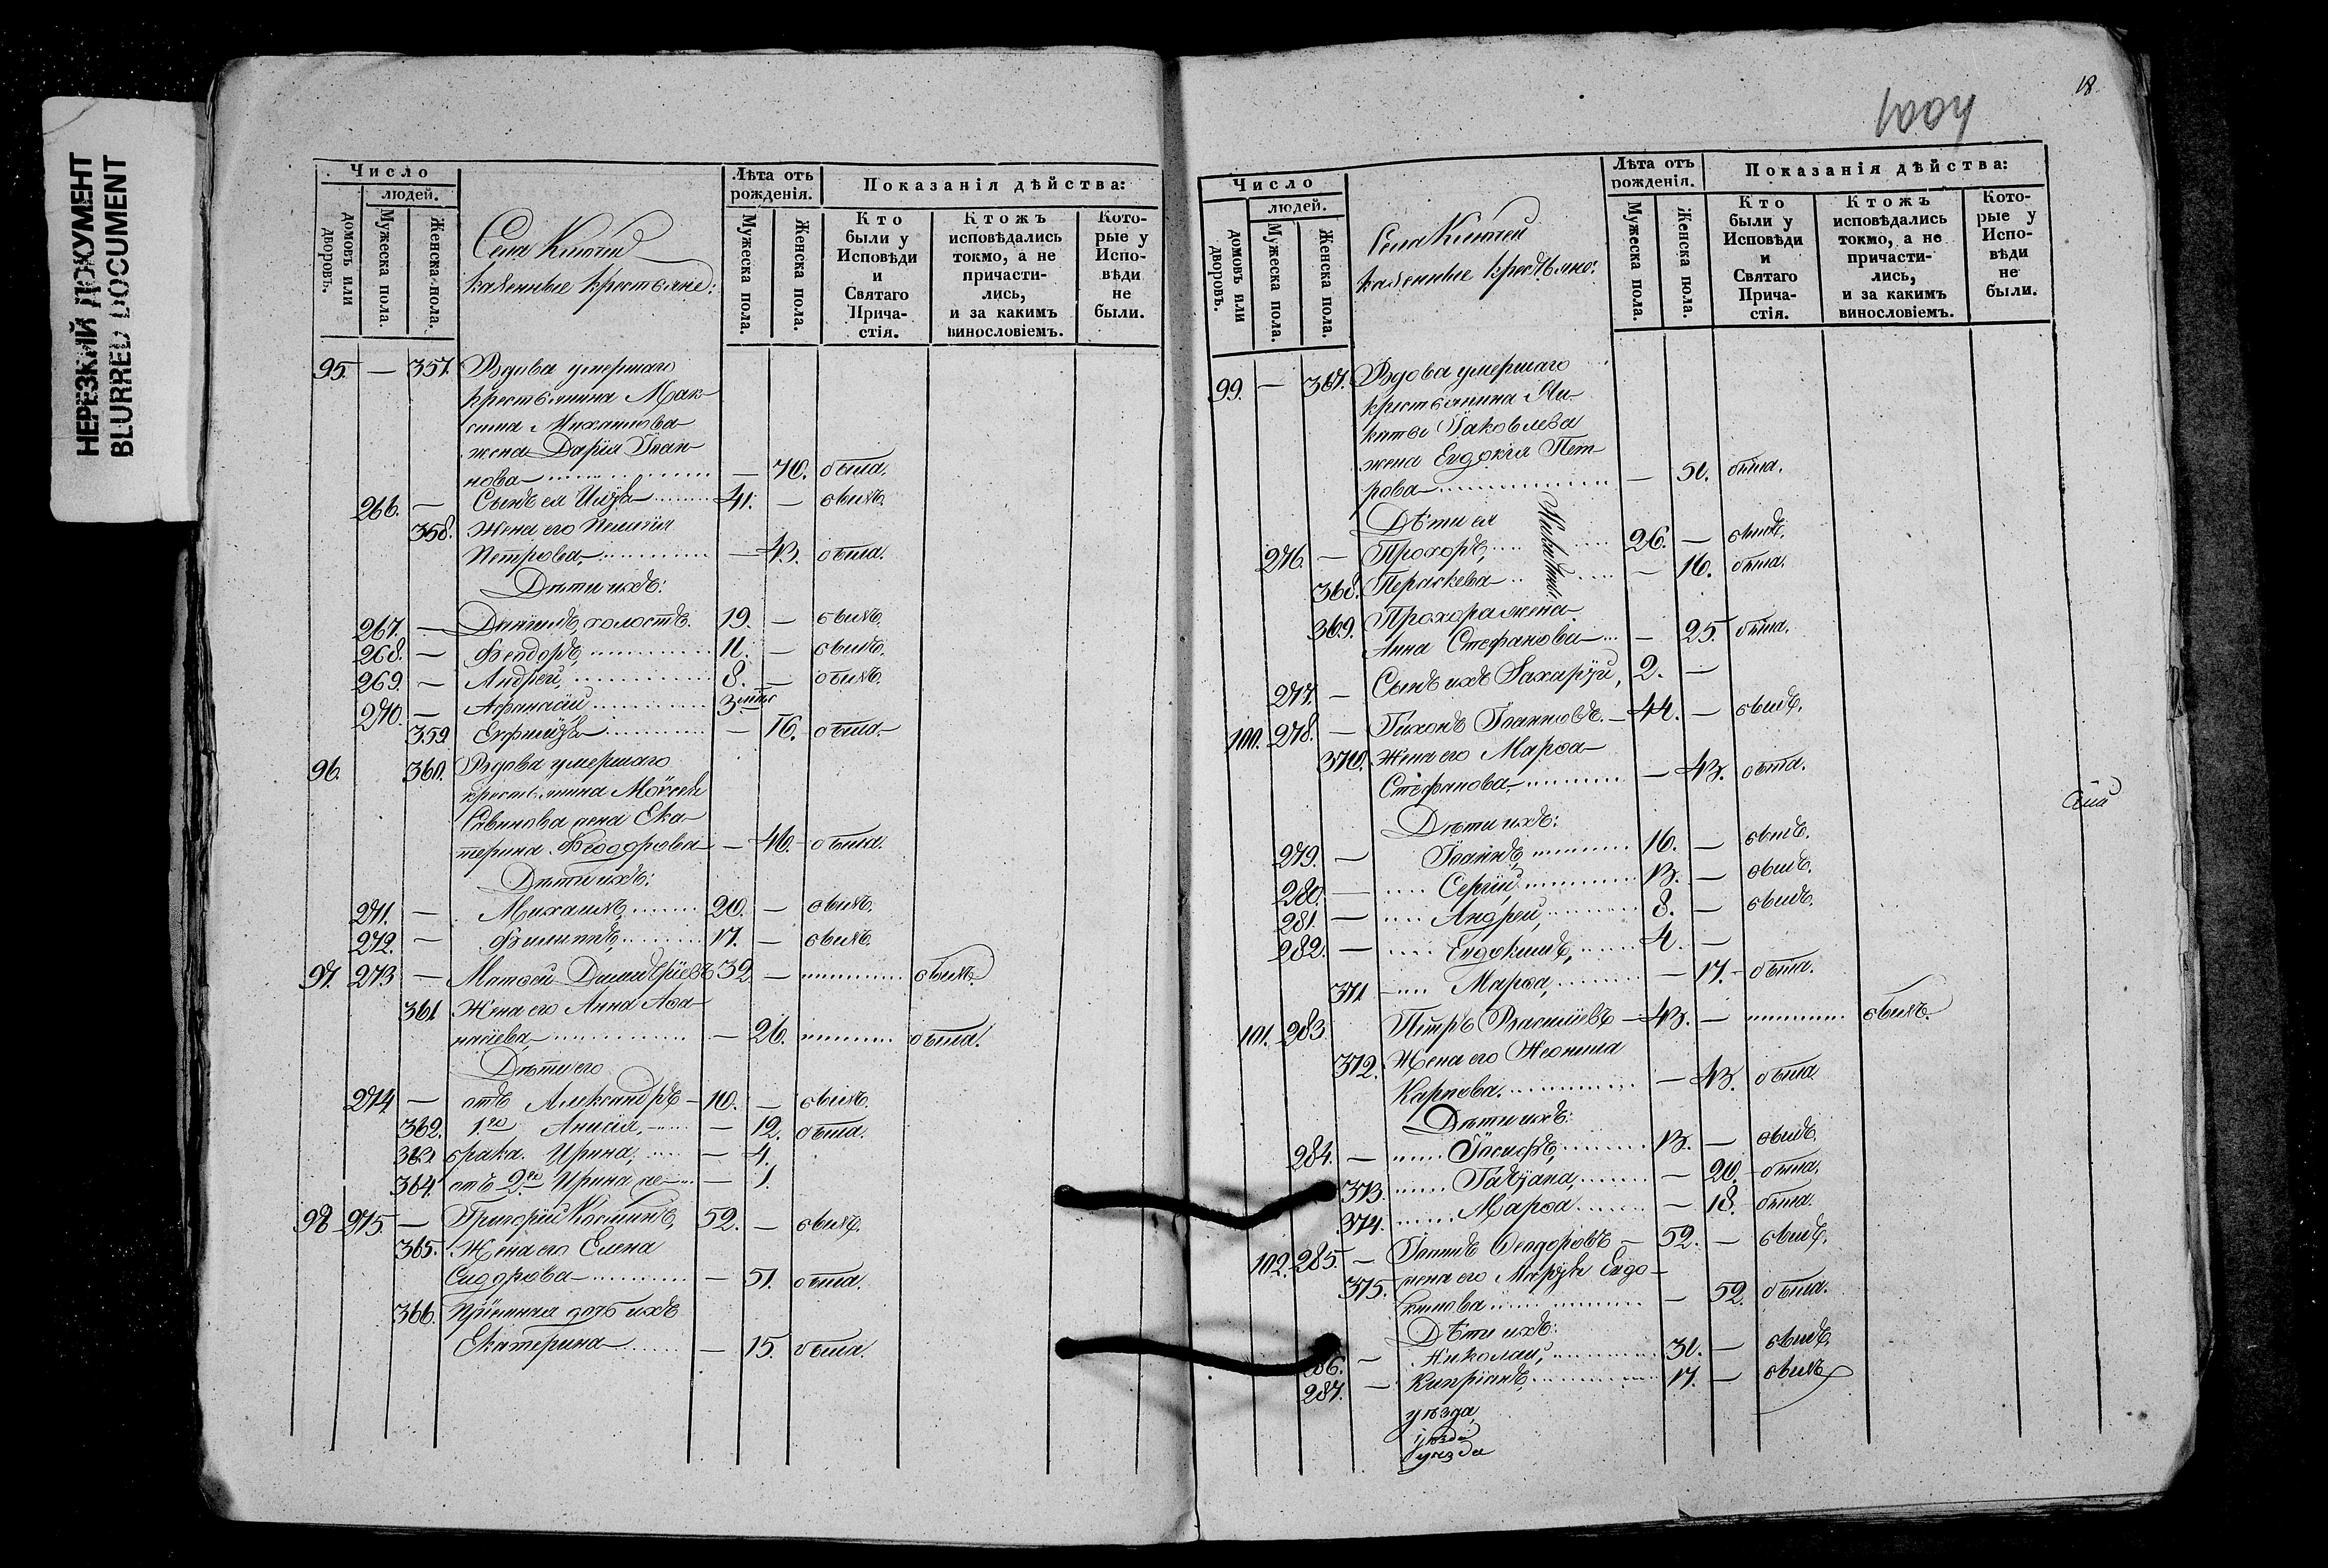 НЕРЕЗКИЙ ДОКУМЕНТ
BLURRED DOCUMENT
Число
людей.
домовъ или дворовъ.
Мужеска пола.
Женска пола.
казенные крестьяне:
Лѣта отъ рожденія.
Мужеска пола.
Женска пола.
Показанія дѣйства:
Кто были у Исповѣди и Святаго Прича-стія.
Ктожъ исповѣдались токмо, а не причасти-лись, и за какимъ винословіемъ.
Кото-рые у Испо-вѣди не были.
95. — 357. Вдова умершаго
крестьянина Мак-
сима Михайлова
жена Дарія Іоан-
нова — 70. была.
266. — Сынъ ея Илія 41. — былъ.
358. Жена его Пелагія
Петрова, — 43. была.
Дѣти ихъ:
267. — Даніилъ, холостъ. 19. — былъ.
268. — Ѳеодоръ, 11. — былъ.
269. — Андрей, 8. — былъ.
270. — Аѳанасій 3
359 Евфимія — 16. была.
96. 360. Вдова умершаго
крестьянина Моѵсея
Саввинова жена Ека-
терина Ѳеодорова — 46. — была.
Дѣти ихъ:
271. — Михаилъ, 20. — былъ.
272. — Филиппъ, 17. — былъ.
97. 273 — Матѳей Димитріевъ 32 — былъ.
361 Жена его Анна Аѳа-
насіева — 26. была.
Дѣти его
274 — отъ Александръ — 10. — былъ.
362. 1го Анисія, — 12. была.
363. брака. Ирина, — 4.
364. отъ 2го Ирина же — 1.
98 275. — Григорій Косминъ, 52. — былъ.
365. Жена его Елена
Сидорова — 51. была.
366. Пріемная дочь ихъ
Екатерина — 15. была.
1004
18.
Число
людей.
домовъ или дворовъ.
Мужеска пола.
Женска пола.
казенные крестьяне:
Лѣта отъ рожденія.
Мужеска пола.
Женска пола.
Показанія дѣйства:
Кто были у Исповѣди и Святаго Прича-стія.
Ктожъ исповѣдались токмо, а не причасти-лись, и за какимъ винословіемъ.
Кото-рые у Испо-вѣди не были.
99. — 367. Вдова умершаго
крестьянина Ни-
киты Іаковлева
жена Евдокія Пет-
рова — 51. была.
Дѣти ея
276. — Прохоръ, 26. — былъ.
368. Параскева — 16. была.
369. Прохора жена
Анна Стефанова — 25. была.
277. — Сынъ ихъ Захарій, 2. —
100. 278. — Тихонъ Іоанновъ. — 44. — былъ.
370. Жена его Марѳа
Стефанова, — 43. была.
Дѣти ихъ:
279. — Іоаннъ, 16. — былъ.
280. — Сергій, 13. — былъ.
281. — Андрей, 8. — былъ.
282. — Евдокимъ, 4. —
371 — Марѳа, — 17. — была.
101. 283. Петръ Василіевъ — 43. — былъ.
372. Жена его Неонила
Карпова. — 43. была
Дѣти ихъ:
284. — Іосифъ, 13. — былъ.
373. Татіана, — 20. — была.
374. Марѳа — 18. — была.
102. 285. — Іоаннъ Ѳеодоровъ — 52. — былъ.
375. жена его Марія Евдо-
кимова — 52. была.
Дѣти ихъ:
286. — Николай, 31. — былъ.
287. — Кипріанъ, 17. — былъ
уѣзда
уѣзда
уѣзда